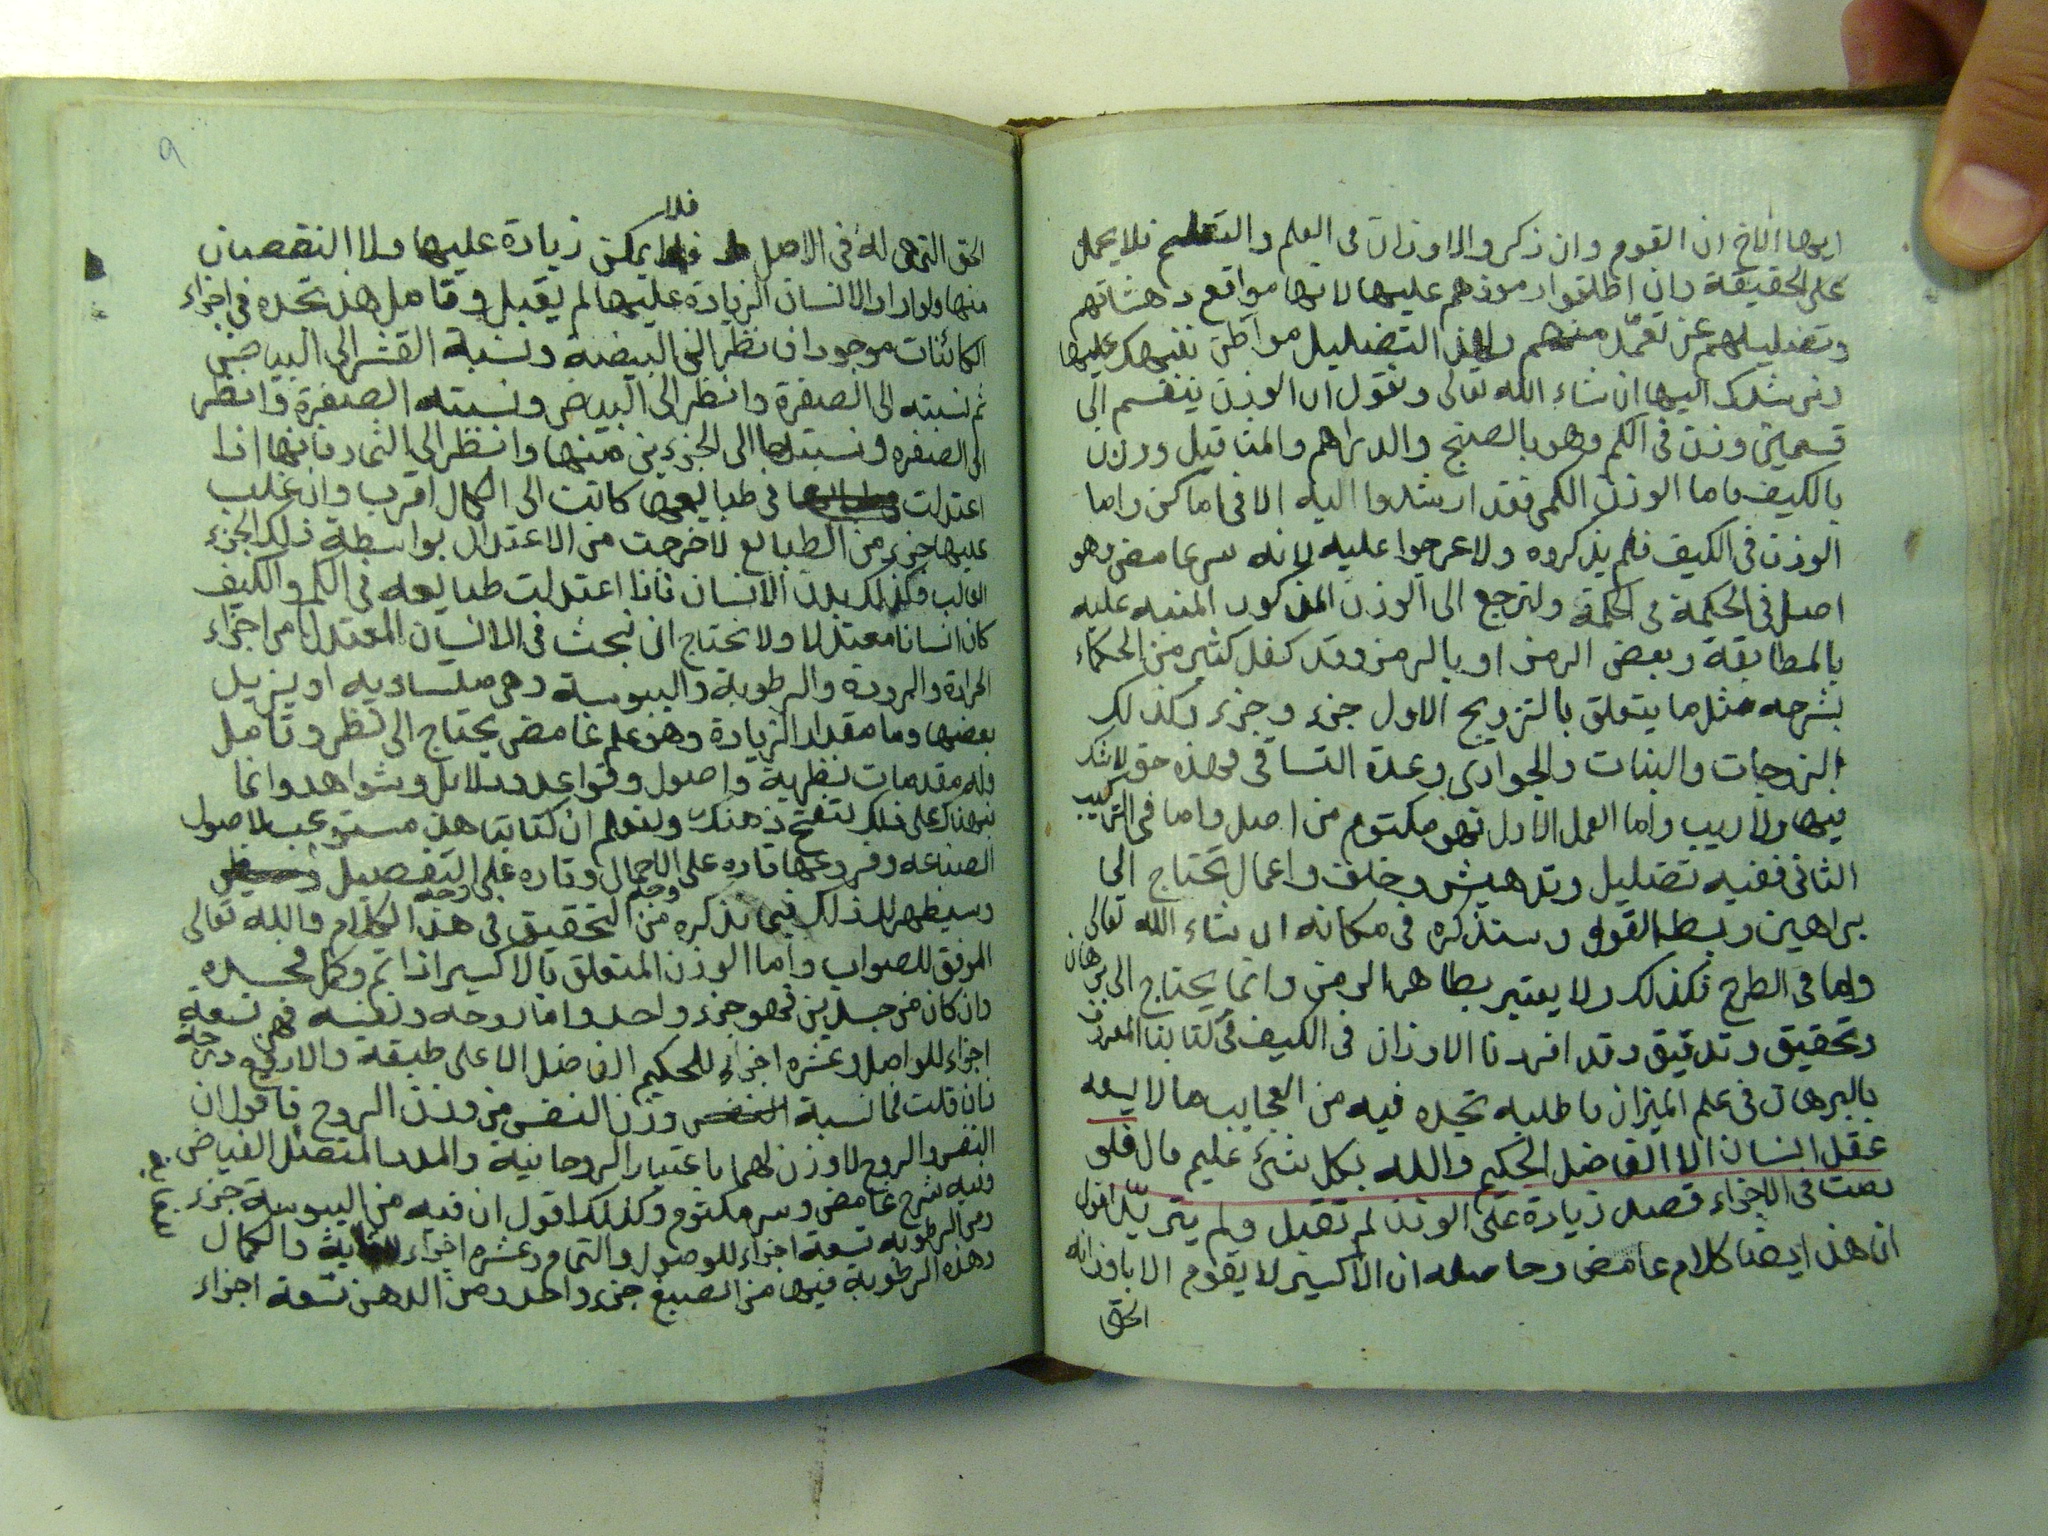 ايها الاخ ان القوم وان ذكروا الاوزان فى العلم والتعليم فلا يحمل
على الحقيقة وان اطلقوا رموزهم عليها لانها مواقع دهشاتهم
وتضليلهم عن تعمّد منهم ولهذا التضليل مواطن ننبهك عليها
ونرشدك اليها ان شاء الله تعالى ونقول ان الوزن ينقسم الى
قسمين وزن فى الكم وهو بالصنج والدراهم والمثاقيل ووزن
بالكيف فاما الوزن الكمى فقد ارشدوا اليه الا فى اماكن واما
الوزن فى الكيف فلم يذكروه ولا عرجوا عليه لانه سر غامض وهو
اصل فى الحكمة فى الحكمة ولنرجع الى الوزن المذكور المنبه عليه
بالمطابقة وبعض الرمز او بالرمز وقد كفل كثير من الحكماء
بشرحه مثل ما يتعلق بالتزويج الاول جزء وجزء وكذلك
الزوجات والبنات والجوارى وعدة التساقى فهذه حق لا شك
فيها ولا ريب واما العمل الاول فهو مكتوم من اصل واما فى التركيب
الثانى ففيه تضليل وتدهيش وخلف واعمال تحتاج الى
براهين وبسط القول وسنذكره فى مكانه ان شاء الله تعالى
واما فى الطرح فكذلك ولا يعتبر بظاهر الرمز وانما يحتاج الى برهان
وتحقيق وتدقيق وقد افردنا الاوزان فى الكيف فى كتابنا المعروف
بالبرهان فى علم الميزان فاطلبه تجده فيه من العجايب ما لا يسعه
عقل انسان الا الفاضل الحكيم والله بكل شىء عليم قال فلو
فى الاجزاء قصد زيادة على الوزن لم تقبل ولم يتربّل اقول
ان هذا ايضا كلام غامض وحاصله ان الاكسير لا يقوم الا باوزانه
الحق
٩
الحق التى هى له فى الاصل فلا يمكن زيادة عليها ولا النقصان
منها ولو اراد الانسان الزيادة عليها لم يقبل وتامل هذا تجده فى اجزاء
الكائنات موجودا فانظر الى البيضة ونسبة القشر الى البياض
ثم نسبته الى الصفرة وانظر الى البياض ونسبته الصفرة وانظر
الى الصفره ونسبتها الى الجزءين منها وانظر الى الثمار فانها اذا
اعتدلت فى طبايعها كانت الى الكمال اقرب وان غلب
عليها جزء من الطبايع لاخرجت من الاعتدال بواسطة ذلك الجزء
الغالب وكذلك بدن الانسان فاذا اعتدلت طبايعه فى الكم والكيف
كان انسانا معتدلا ولا نحتاج ان نبحث فى الانسان المعتدل ما من اجزاء
الحرارة والبرودة والرطوبة واليبوسة وهى متساويه او يزيل
بعضها وما مقدار الزيادة وهو علم غامض يحتاج الى نظر وتامل
وله مقدمات نظرية واصول وقواعد ودلايل وشواهد وانما
نبهناك على ذلك لتفتح ذهنك ولتعلم ان كتابنا هذا مستوعب لاصول
الصناعه وفروعها تاره على الاجمال وتاره على التفصيل
وسيظهر لك ذلك فيما نذكره من التحقيق فى هذا الكلام والله تعالى
الموفق للصواب واما الوزن المتعلق بالاكسير اذا تم وكمل فجسده
وان كان من جسدين فهو جزء واحد واما روحه ونفسه فهى تسعة
اجزاء للواصل وعشره اجزاء للحكيم الفاضل الاعلى طبقة والارفع درجة
فان قلت فما نسبة وزن النفس من وزن الروح فاقول ان
النفس والروح لا وزن لهما باعتبار الروحانية والمدد المتصل الفياض
وفيه شرح غامض وسر مكتوم وكذلك اقول ان فيه من اليبوسة جزء
ومن الرطوبه تسعة اجزاء للوصول والتمام وعشره اجزاء للغاية والكمال
وهذه الرطوبة فيها من الصبغ جزء واحد ومن الدهن تسعة اجزاء